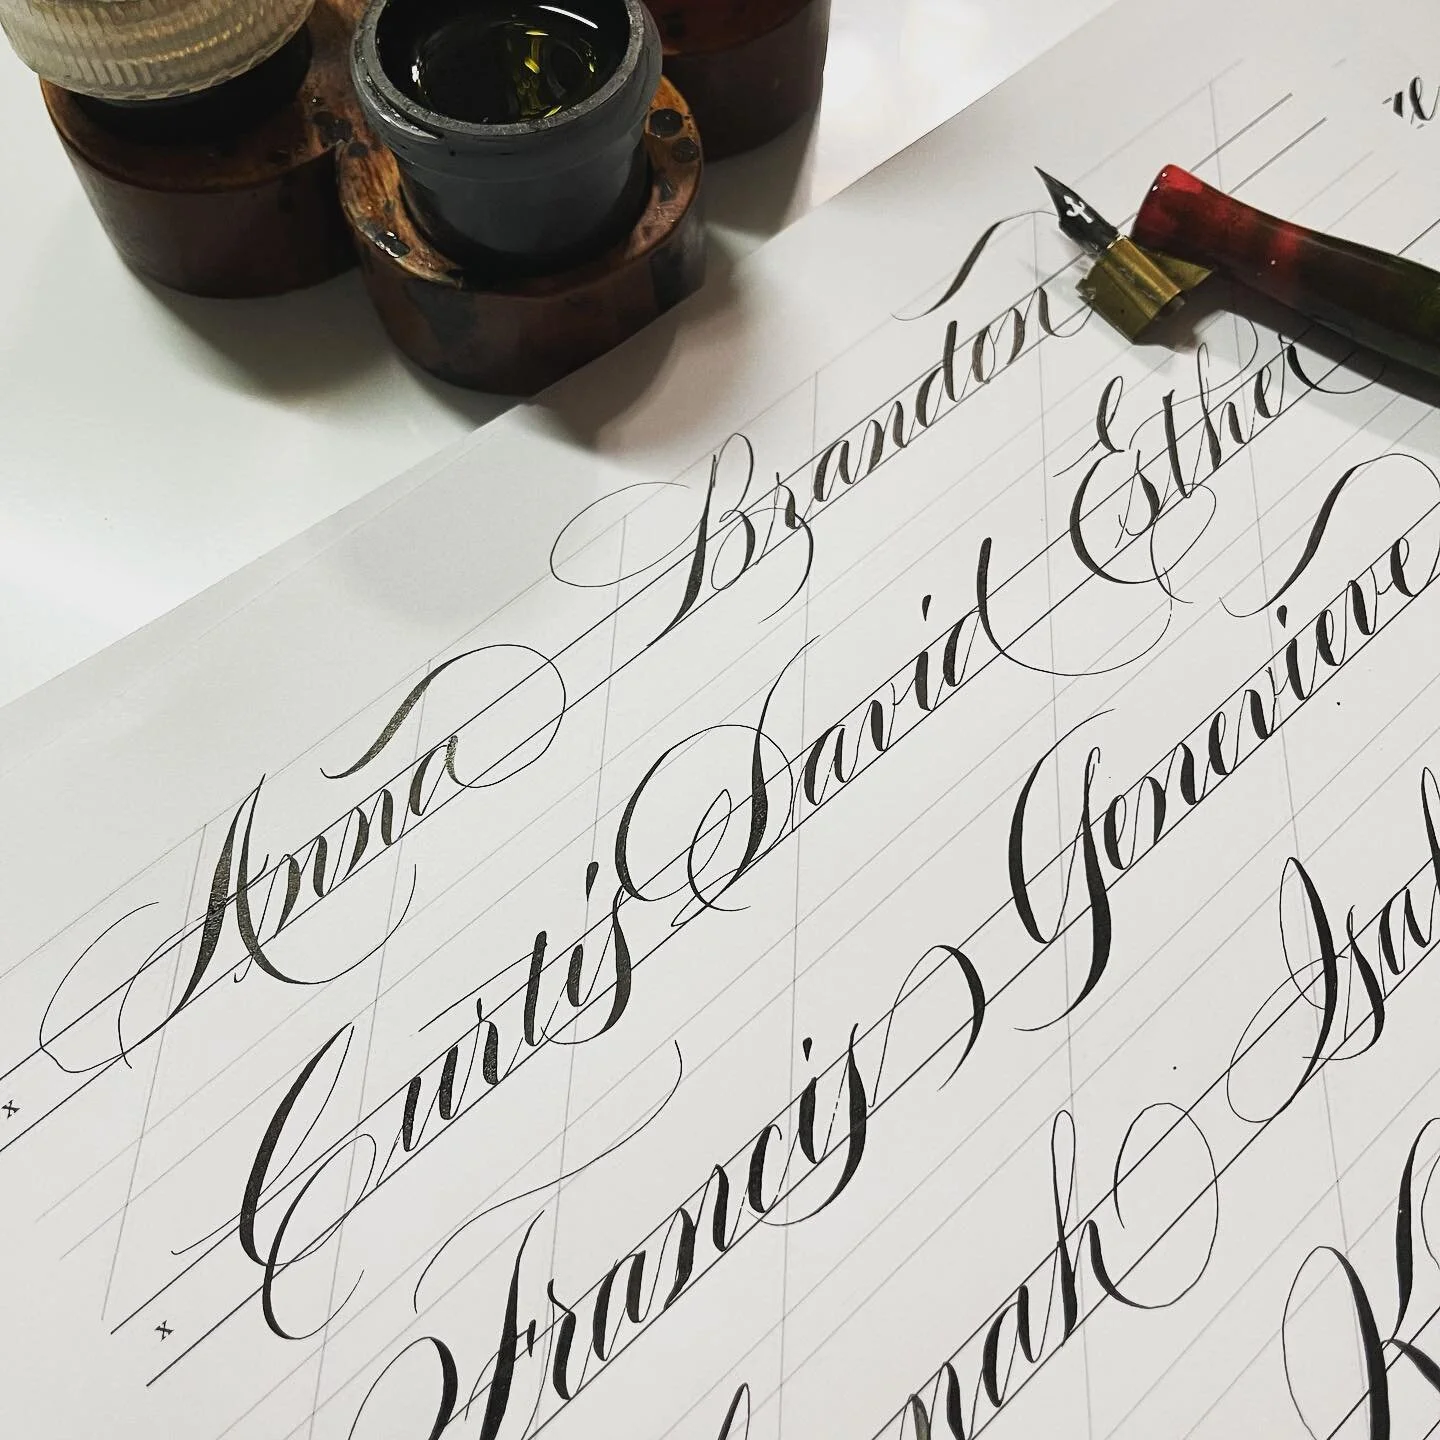 Anna Brandon
x
Curtis David Esther
x
Francis Genevieve
nah Isab
K